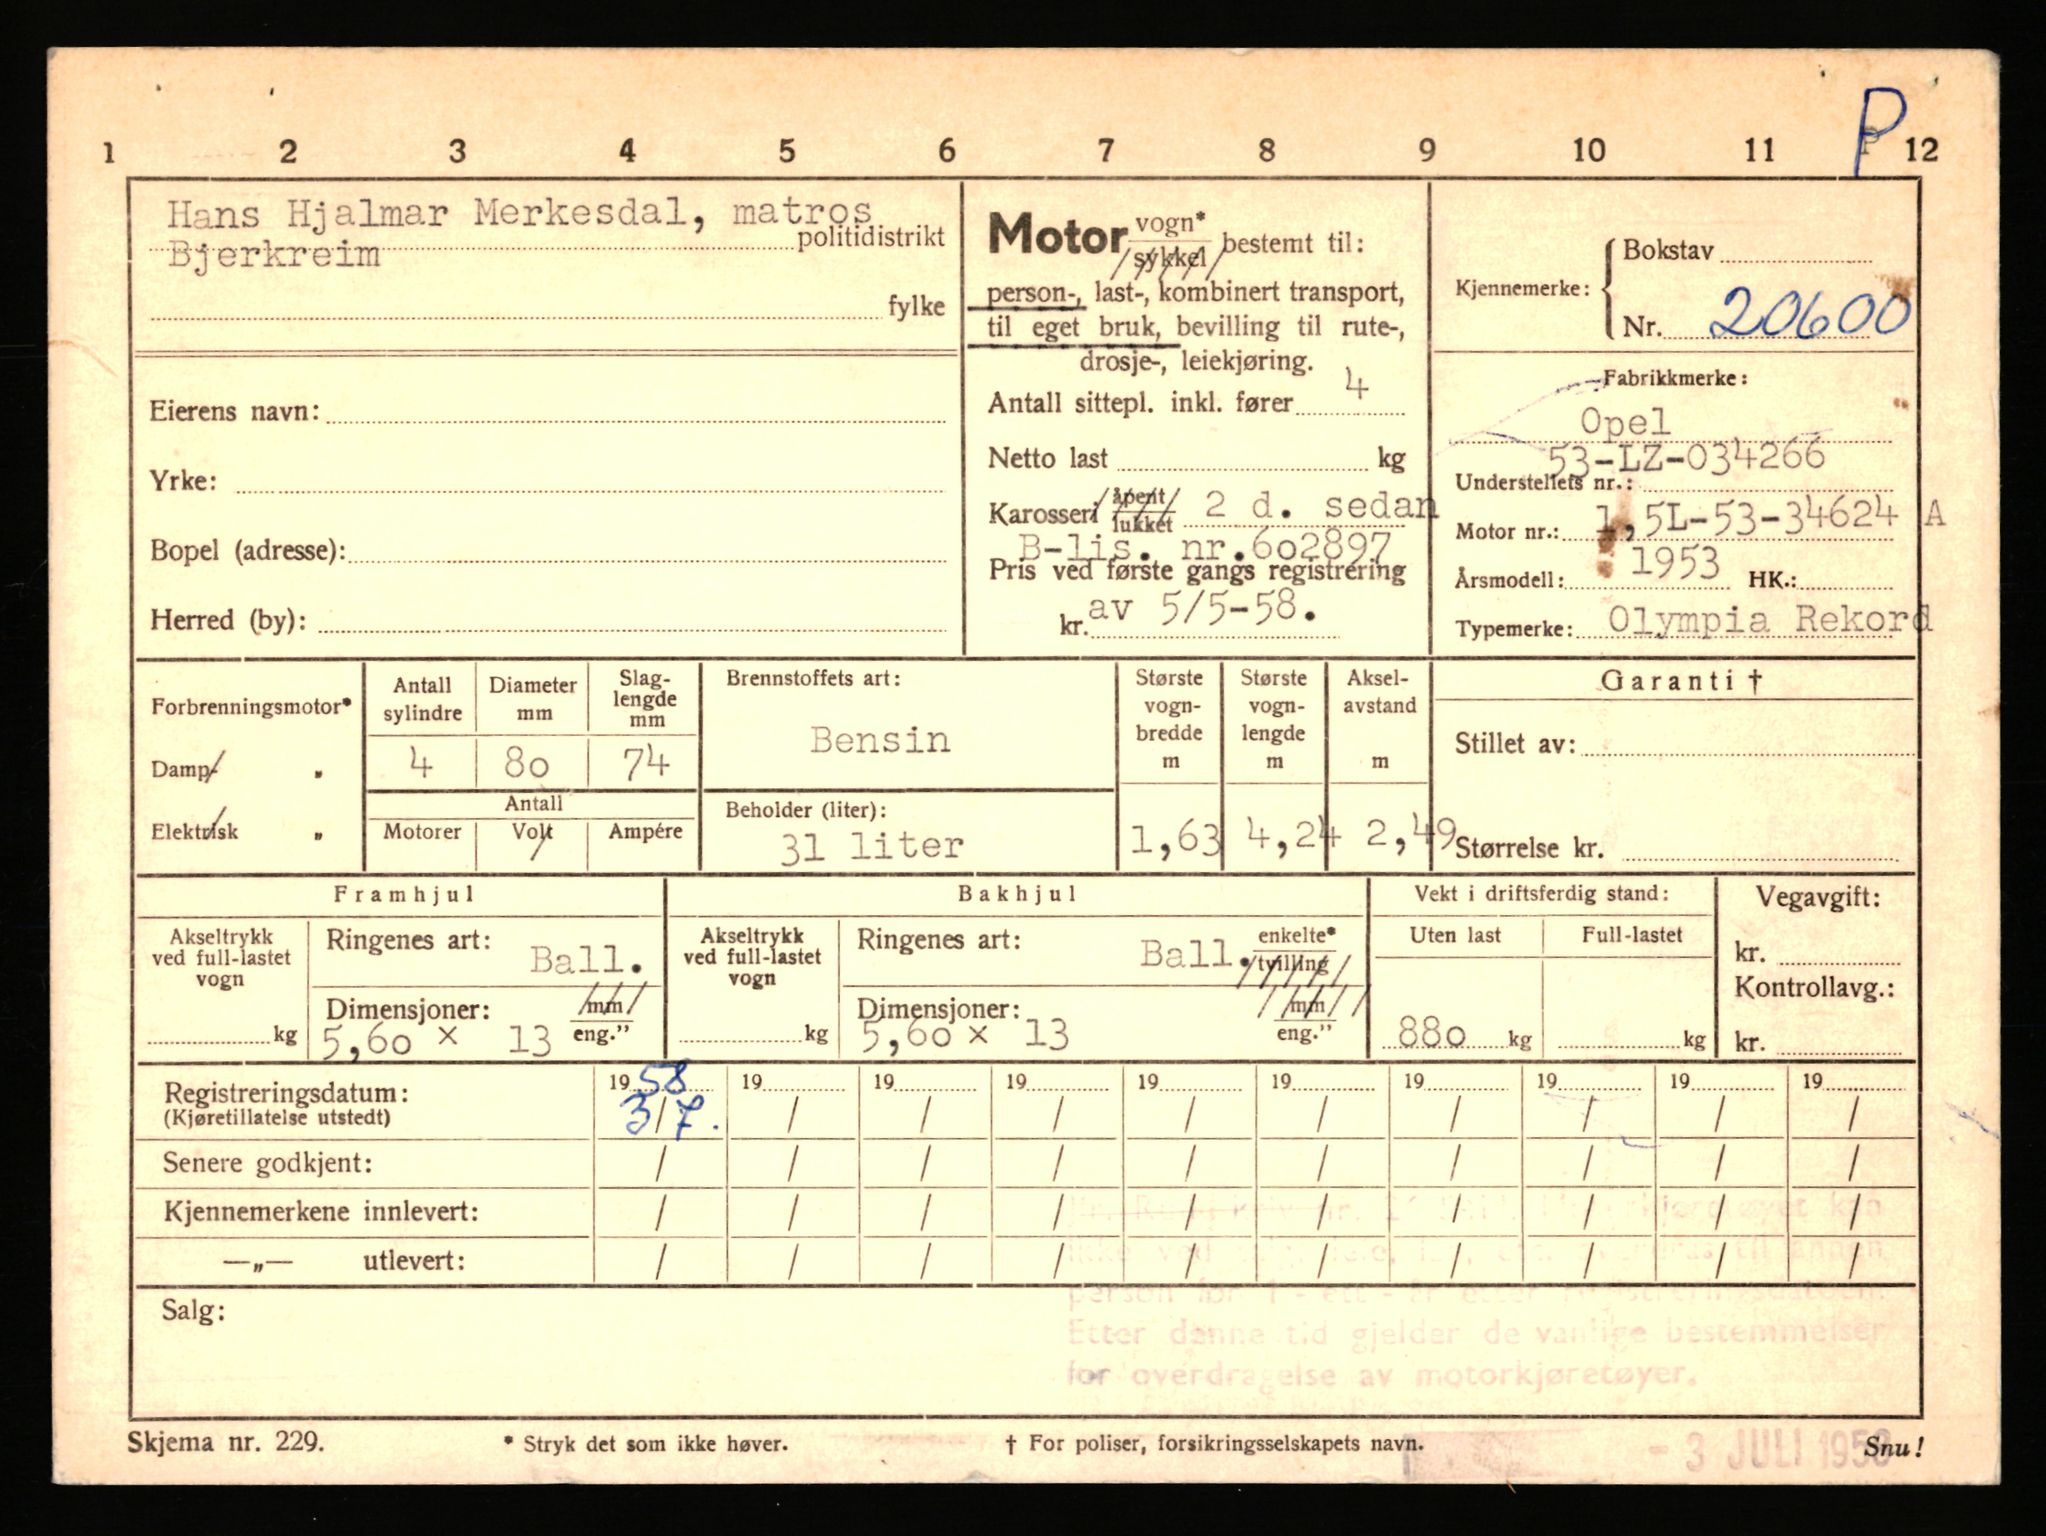 P
1 2 3 4 5 6 7 8 9 10 11 P 12
Hans Hjalmar Merkesdal, matros
politidistrikt
Bjerkreim
fylke
Eierens navn:
Yrke:
Bopel (adresse):
Herred (by):
Motor vogn* sykkel bestemt til:
person-, last-, kombinert transport,
til eget bruk, bevilling til rute-,
drosje-, leiekjøring.
Antall sittepl. inkl. fører 4
Netto last kg
Karosseri åpent lukket 2 d. sedan
B-lis. nr.602897
Pris ved første gangs registrering
kr. av 5/5-58.
Kjennemerke: Bokstav
Nr. 20600
Fabrikkmerke:
Opel
53-LZ-034266
Understellets nr.:
Motor nr.: 1,5L-53-34624 A
Årsmodell: 1953 HK.:
Typemerke: Olympia Rekord
Forbrenningsmotor*
Damp- „
Elektrisk „
Antall sylindre
Diameter mm
Slag-lengde mm
4 80 74
Antall
Motorer Volt Ampére
Brennstoffets art:
Bensin
Beholder (liter):
31 liter
Største vogn-bredde m
Største vogn-lengde m
Aksel-avstand m
1,63 4,24 2,49
Garanti †
Stillet av:
Størrelse kr.
Framhjul
Akseltrykk ved full-lastet vogn
kg
Ringenes art: Ball.
Dimensjoner: mm
5,60 x 13 eng."
Bakhjul
Akseltrykk ved full-lastet vogn
kg
Ringenes art: Ball. enkelte* tvilling
Dimensjoner: mm
5,60 x 13 eng."
Vekt i driftsferdig stand:
Uten last Full-lastet
880 kg kg
Vegavgift:
kr.
Kontrollavg.:
kr.
Registreringsdatum: 19 58 19 19 19 19 19 19 19 19 19
(Kjøretillatelse utstedt) 3/7. / / / / / / / / /
Senere godkjent: / / / / / / / / / /
Kjennemerkene innlevert: / / / / / / / / / /
—„— utlevert: / / / / / / / / / /
Salg:
person før 1 - ett - år etter registreringsdatoen.
Etter denne tid gjelder de vanlige bestemmelser
for overdragelse av motorkjøretøyer.
Skjema nr. 229.
* Stryk det som ikke høver.
† For poliser, forsikringsselskapets navn.
- 3 JULI 1958
Snu!